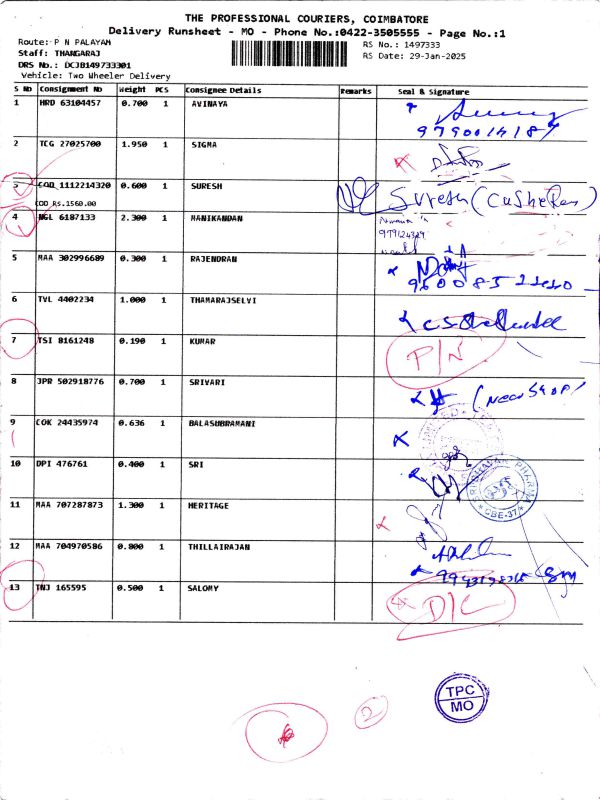 THE PROFESSIONAL COURIERS, COIMBATORE
Delivery Runsheet - MO - Phone No.:0422-3505555 - Page No.:1
Route: P N PALAYAM
RS No.: 1497333
Staff: THANGARAJ
RS Date: 29-Jan-2025
DRS No.: DCJB149733301
Vehicle: Two Wheeler Delivery
S No Consignment No Weight PCS Consignee Details Remarks Seal & Signature
1 HRD 63104457 0.700 1 AVINAYA
2 TCG 27025700 1.950 1 SIGMA
3 COD 1112214320 0.600 1 SURESH Suresh
COD RS.1560.00
4 NGL 6187133 2.300 1 MANIKANDAN
5 MAA 302996689 0.300 1 RAJENDRAN
6 TVL 4402234 1.000 1 THAMARAJSELVI
7 TSI 8161248 0.190 1 KUMAR P/N
8 JPR 502918776 0.700 1 SRIVARI
9 COK 24435974 0.636 1 BALASUBRAMANI
10 DPI 476761 0.400 1 SRI
PHARMA
CBE-37
11 MAA 707287873 1.300 1 HERITAGE
12 MAA 704970586 0.800 1 THILLAIRAJAN
13 TNJ 165595 0.500 1 SALOMY D/L
TPC
MO
2